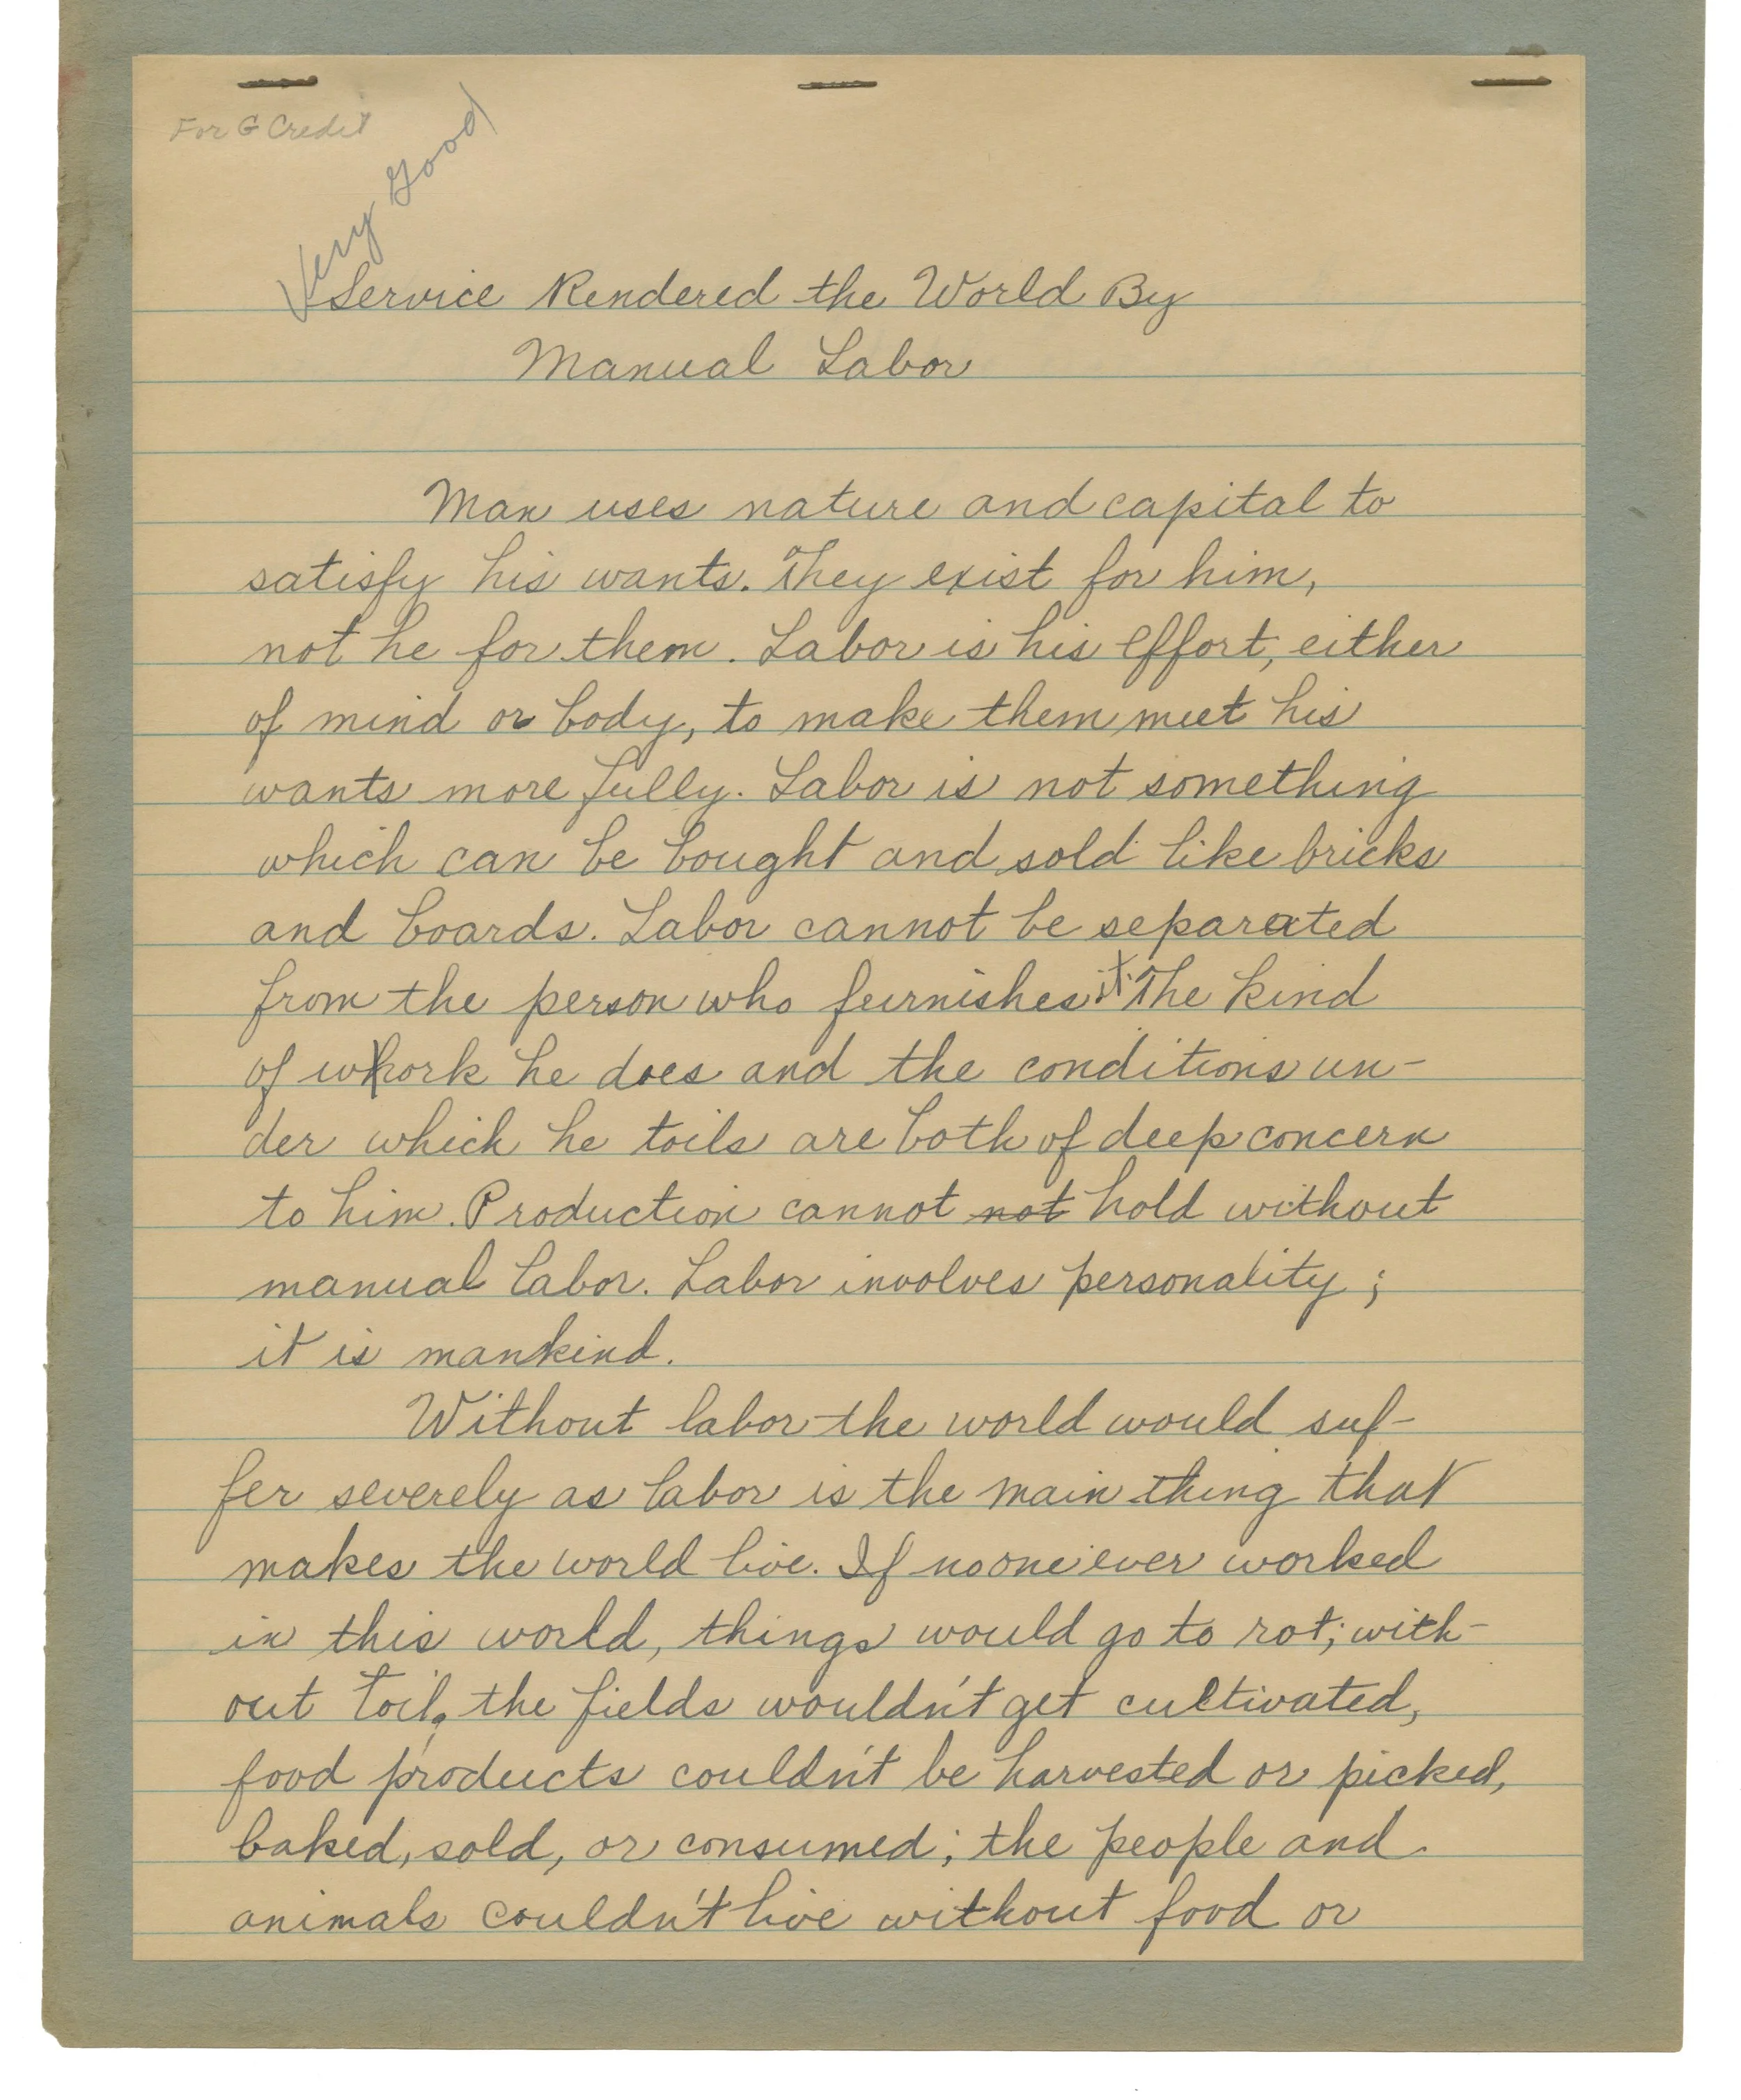 For G Credit
Very Good
Service Rendered the World By
Manual Labor
Man uses nature and capital to
satisfy his wants. They exist for him,
not he for them. Labor is his effort, either
of mind or body, to make them meet his
wants more fully. Labor is not something
which can be bought and sold like bricks
and boards. Labor cannot be separated
from the person who furnishes it. The kind
of work he does and the conditions un-
der which he toils are both of deep concern
to him. Production cannot not hold without
manual labor. Labor involves personality;
it is mankind.
Without labor the world would suf-
fer severely as labor is the main thing that
makes the world live. If no one ever worked
in this world, things would go to rot; with-
out toil, the fields wouldn't get cultivated,
food products couldn't be harvested or picked,
baked, sold, or consumed; the people and
animals couldn't live without food or